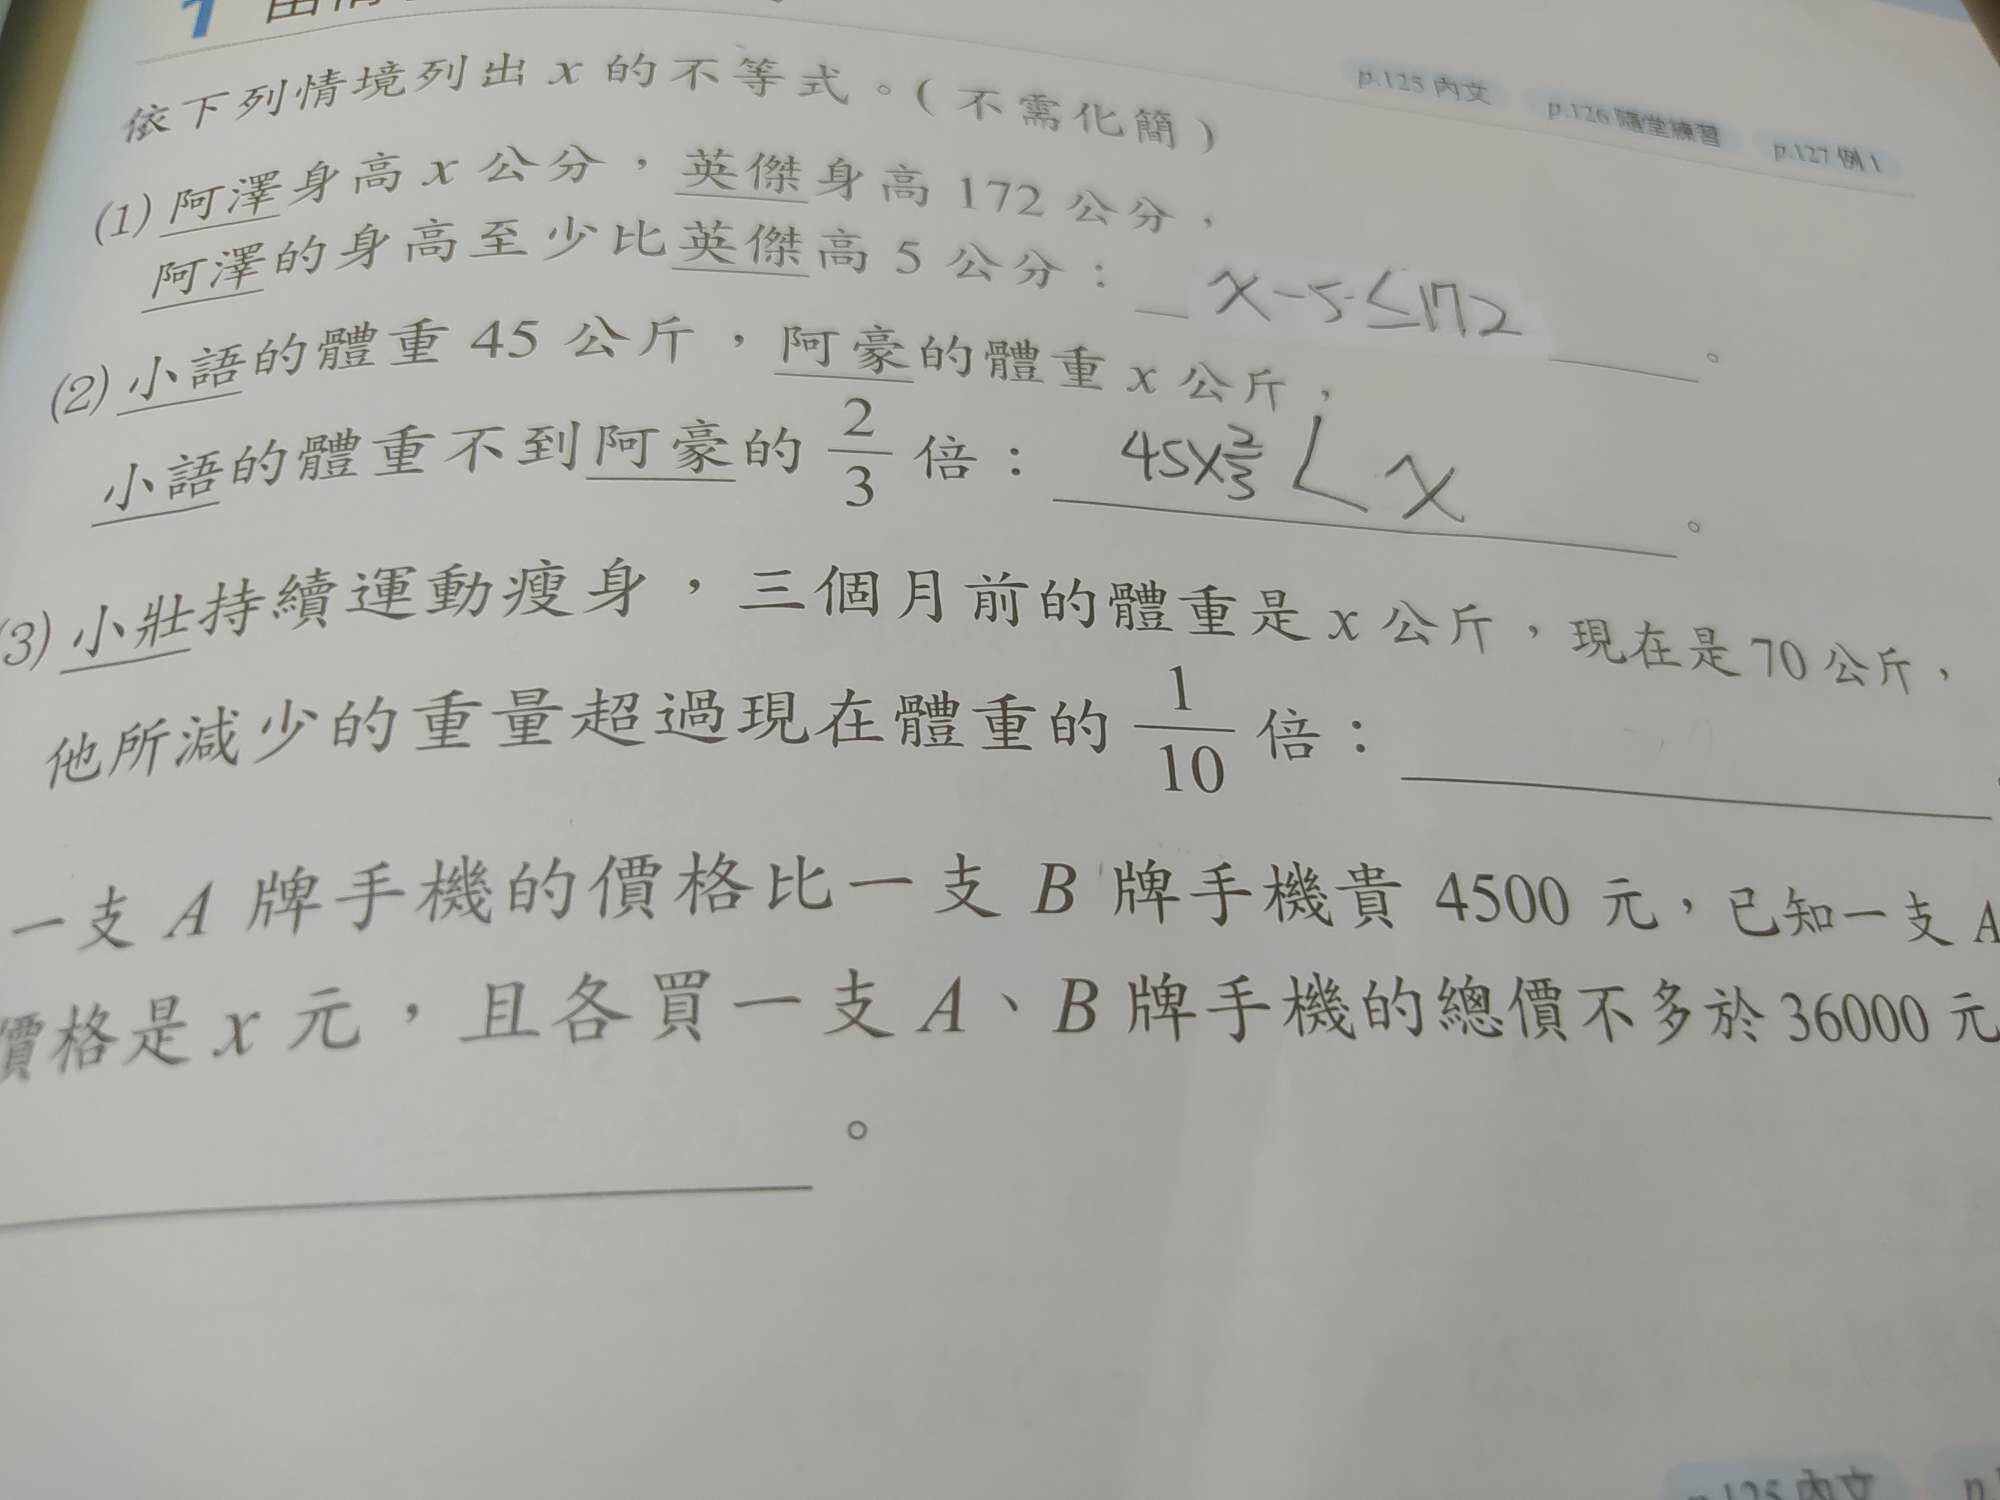 1
依下列情境列出 x 的不等式。(不需化簡)
p.125 內文 p.126 隨堂練習 p.127 例1
(1) 阿澤身高 x 公分,英傑身高 172 公分,
阿澤的身高至少比英傑高 5 公分: x-5≤172 。
(2) 小語的體重 45 公斤,阿豪的體重 x 公斤,
小語的體重不到阿豪的 2/3 倍: 45×2/3 < x 。
(3) 小壯持續運動瘦身,三個月前的體重是 x 公斤,現在是 70 公斤,
他所減少的重量超過現在體重的 1/10 倍:
一支 A 牌手機的價格比一支 B 牌手機貴 4500 元,已知一支 A
價格是 x 元,且各買一支 A、B 牌手機的總價不多於 36000 元
。
p.125 內文